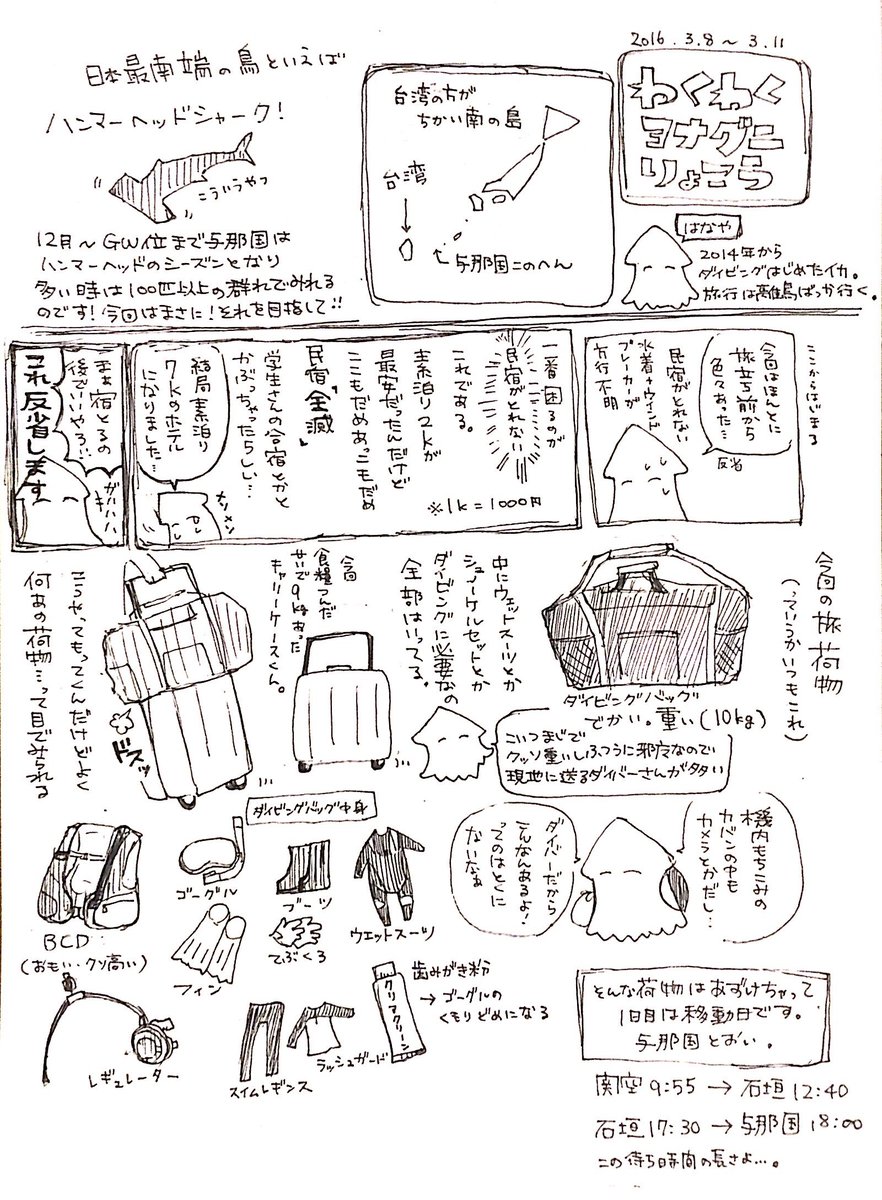 2016.3.8〜3.11
わくわく
ヨナグニ
りょこう
はなや
2014年から
ダイビングはじめたイカ。
旅行は離島ばっか行く。
台湾の方が
ちかい南の島
台湾
与那国このへん
日本最南端の島といえば
ハンマーヘッドシャーク!
こういうやつ
12月〜GW位まで与那国は
ハンマーヘッドのシーズンとなり
多い時は100匹以上の群れでみれる
のです!今回はまさに!それを目指して!!
ここからはじまる
今回はほんとに
旅立ち前から
色々あった…
反省
民宿がとれない
水着+ウインド
ブレーカーが
行方不明
一番困るのが
民宿がとれない
これである。
素泊り2kが
最安だったんだけど
ここもだめあっこもだめ
民宿「全滅」
学生さんの合宿とかと
かぶっちゃったらしい…
※1k=1000円
結局素泊り
7kのホテル
になりました…
メソメソ
まぁ宿とるの
後でいいやろ…
ガハハハ
これ反省します
今回の旅荷物
(っていうかいつもこれ)
ダイビングバッグ
でかい。重い(10kg)
中にウェットスーツとか
シュノーケルセットとか
ダイビングに必要なの
全部はいってる。
こいつまじで
クッソ重いしふつうに邪魔なので
現地に送るダイバーさんが多い
今回
食糧つんだ
せいで9kgあった
キャリーケースくん。
ドスッ
こうやってもってくんだけどよく
何あの荷物…って目でみられる
機内もちこみの
カバンの中も
カメラとかだし…
ダイバーだから
そんなんあるよ!
ってのはとくに
ないなぁ
ダイビングバッグ中身
BCD
(おもい・クソ高い)
ゴーグル
ブーツ
ウエットスーツ
フィン
てぶくろ
レギュレーター
スイムレギンス
ラッシュガード
クリアクリーン
歯みがき粉
→ゴーグルの
くもりどめになる
そんな荷物はあずけちゃって
1日目は移動日です。
与那国とおい。
関空9:55→石垣12:40
石垣17:30→与那国18:00
この待ち時間の長さよ…。